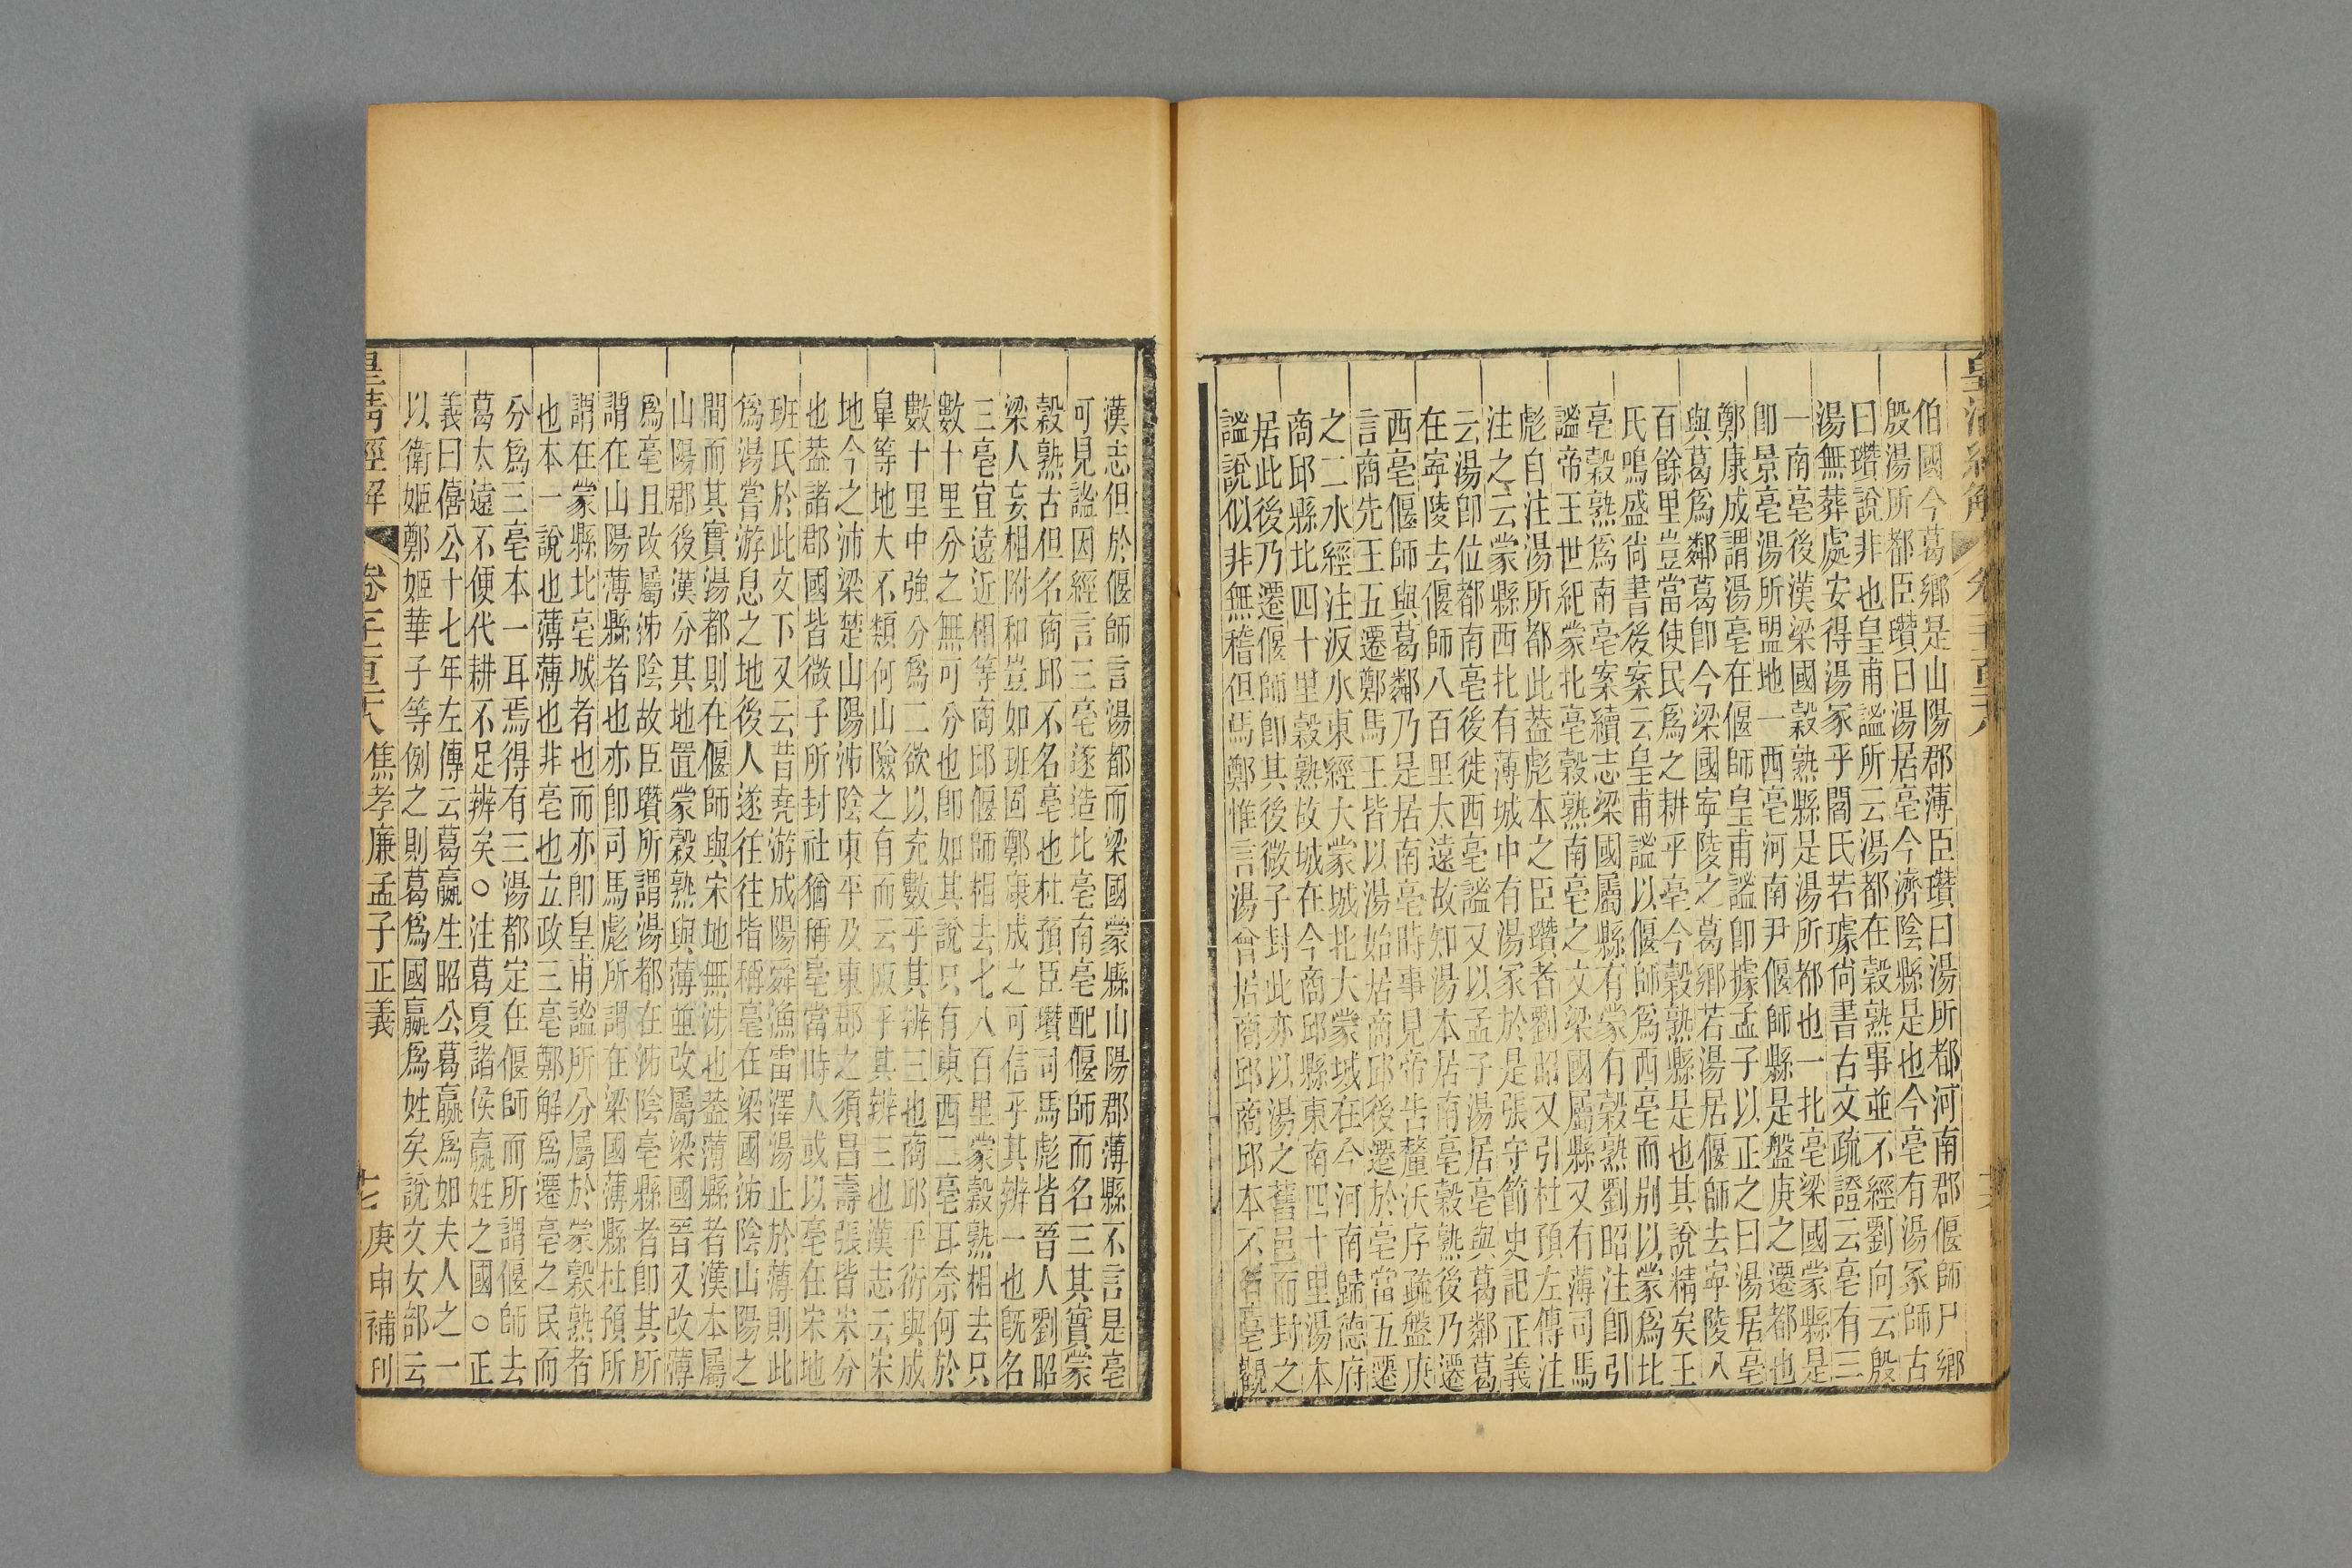 皇清經解
伯國今葛鄉是山陽郡薄臣瓚曰湯所都河南郡偃師尸鄉
殷湯所都臣瓚曰湯居亳今濟陰縣是也今亳有湯冢師古
曰瓚說非也皇甫謐所云湯都在穀熟事並不經劉向云殷
湯無葬處安得湯冢乎閻氏若璩尚書古文疏證云亳有三
一南亳後漢梁國穀熟縣是湯所都也一北亳梁國蒙縣是
即景亳湯所盟地一西亳河南尹偃師縣是盤庚之遷都也
鄭康成謂湯亳在偃師皇甫謐卽據孟子以正之曰湯居亳
與葛爲鄰葛卽今梁國寜陵之葛鄉若湯居偃師去寜陵八
百餘里豈當使民爲之耕乎亳今穀熟縣是也其說精矣王
氏鳴盛尚書後案云皇甫謐以偃師爲西亳而别以蒙爲北
亳穀熟爲南亳案續志梁國屬縣有蒙有穀熟劉昭注卽引
謐帝王世紀蒙北亳穀熟南亳之文梁國屬縣又有薄司馬
彪自注湯所都此葢彪本之臣瓚者劉昭又引杜預左傳注
注之云蒙縣西北有薄城中有湯冢於是張守節史記正義
云湯卽位都南亳後徙西亳謐又以孟子湯居亳與葛鄰葛
在寜陵去偃師八百里太遠故知湯本居南亳穀熟後乃遷
西亳偃師與葛鄰乃是居南亳時事見帝告釐沃序疏盤庚
言商先王五遷鄭馬王皆以湯始居商邱後遷於亳當五遷
之二水經注汳水東經大蒙城北大蒙城在今河南歸德府
商邱縣北四十里穀熟故城在今商邱縣東南四十里湯本
居此後乃遷偃師卽其後微子封此亦以湯之舊邑而封之
謐說似非無稽但馬鄭惟言湯曾居商邱商邱本不名亳觀
漢志但於偃師言湯都而梁國蒙縣山陽郡薄縣不言是亳
可見謐因經言三亳遂造北亳南亳配偃師而名三其實蒙
穀熟古但名商邱不名亳也杜預臣瓚司馬彪皆晉人劉昭
梁人妄相附和豈如班固鄭康成之可信乎其辨一也旣名
三亳宜遠近相等商邱偃師相去七八百里蒙穀熟相去只
數十里分之無可分也卽如其說只有東西二亳耳奈何於
數十里中強分爲二欲以充數乎其辨三也商邱平衍與成
皐等地大不類何山險之有而云阪乎其辨三也漢志云宋
地今之沛梁楚山陽沛陰東平及東郡之須昌壽張皆宋分
也葢諸郡國皆微子所封社猶稱亳當時人或以亳在宋地
班氏於此文下又云昔堯游成陽舜漁雷澤湯止於薄則此
爲湯嘗游息之地後人遂往往指稱亳在梁國沛陰山陽之
間而其實湯都則在偃師與宋地無涉也葢薄縣者漢本屬
山陽郡後漢分其地置蒙穀熟與薄並改屬梁國晉又改薄
爲亳且改屬沛陰故臣瓚所謂湯都在沛陰亳縣者卽其所
謂在山陽薄縣者也亦卽司馬彪所謂在梁國薄縣杜預所
謂在蒙縣北亳城者也而亦卽皇甫謐所分屬於蒙穀熟者
也本一說也薄薄也非亳也立政三亳鄭解爲遷亳之民而
分爲三亳本一耳焉得有三湯都定在偃師而所謂偃師去
葛太遠不便代耕不足辨矣○注葛夏諸侯嬴姓之國○正
義曰僖公十七年左傳云葛嬴生昭公葛嬴爲如夫人之一
以衛姬鄭姬華子等例之則葛爲國嬴爲姓矣說文女部云
皇清經解 焦孝廉孟子正義 十七 庚申補刊